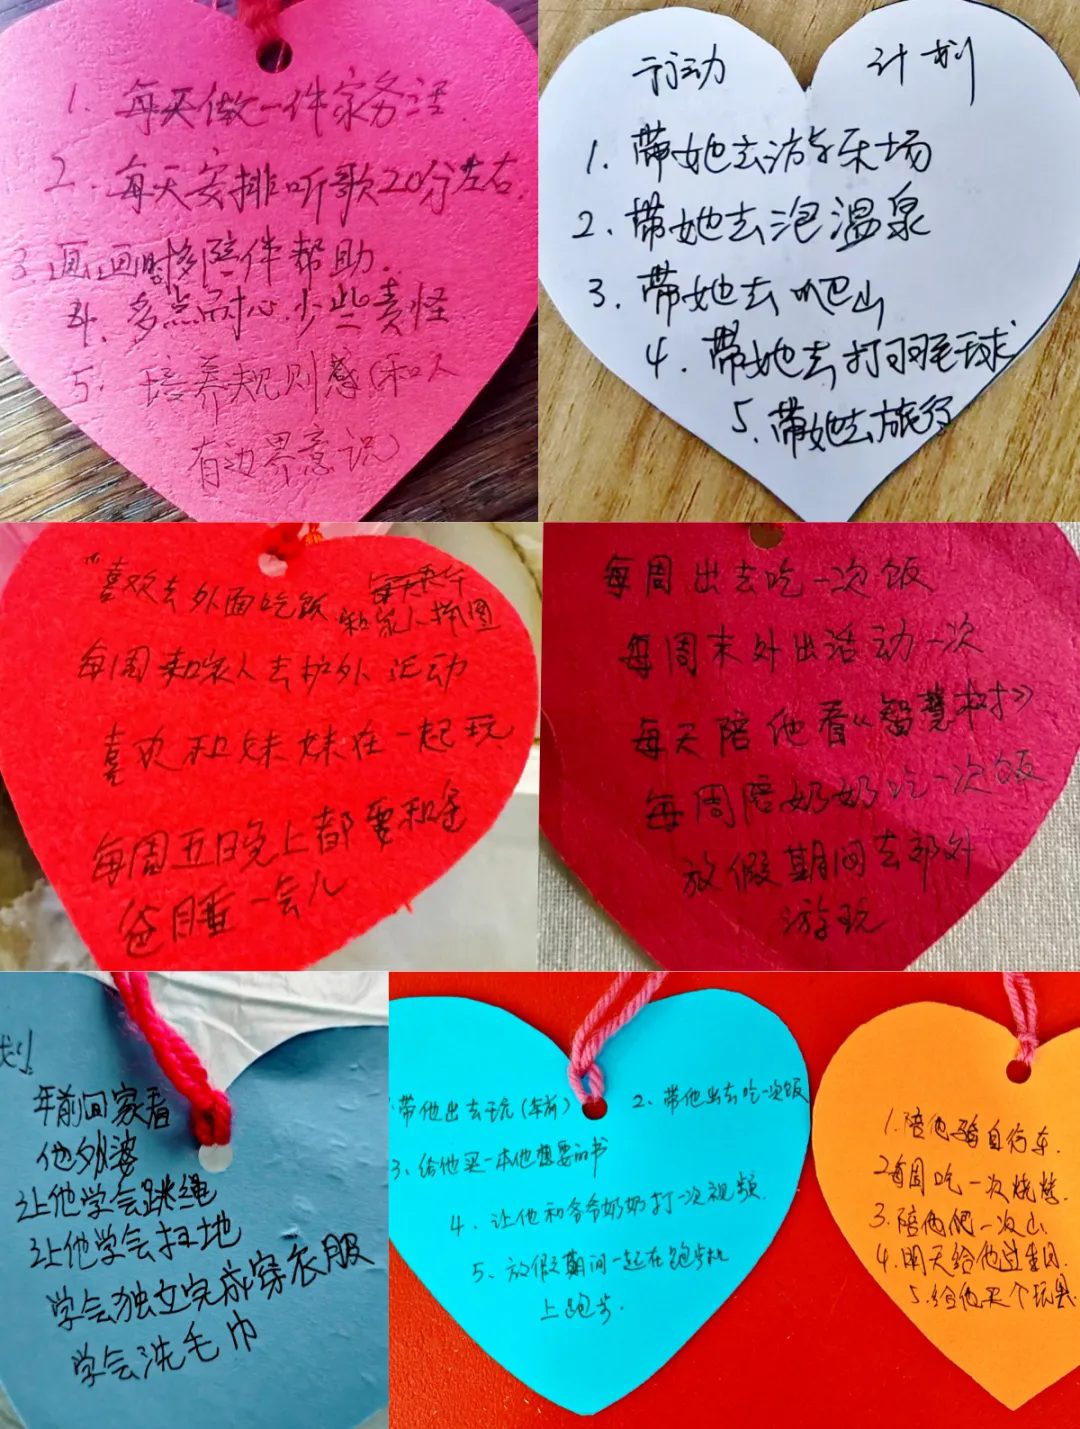 1. 每天做一件家务活.
2. 每天安排听歌20分左右.
3. 画画时多陪伴帮助.
4. 多点耐心.少些责怪
5. 培养规则感(和人
有边界意识)
行动 计划
1. 带她去游乐场
2. 带她去泡温泉
3. 带她去爬山
4. 带她去打羽毛球
5. 带她去旅行
喜欢去外面吃饭
和家人拼图
每周和家人去户外运动
喜欢和妹妹在一起玩
每周五日晚上都要和爸
爸睡一会儿
每周出去吃一次饭
每周末外出活动一次
每天陪他看《智慧树》
每周陪奶奶吃一次饭
放假期间去郊外
游玩
划
年前回家看
他外婆
让他学会跳绳
让他学会扫地
学会独立完成穿衣服
学会洗毛巾
带他出去玩(年前) 2、带他出去吃一次饭
3、给他买一本他想要的书
4、让他和爷爷奶奶打一次视频.
5、放假期间一起在跑步机
上跑步.
1.陪他骑自行车.
2每周吃一次烧烤
3.陪他爬一次山.
4.明天给他过生日.
5.给他买个玩具